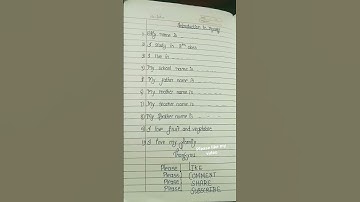 Introduction to Myself
1) My name is ...
2) I study in 5th class
3) I live in ...
5) My school name is ...
6) My father name is ...
6) My mother name is ...
7) My teacher name is ...
8) My Brother name is ...
9) I love fruit and vegetable
10) I love my family
Please like my
video
Thankyou
Please LIKE
Please COMMENT
Please SHARE
Please SUBSCRIBE